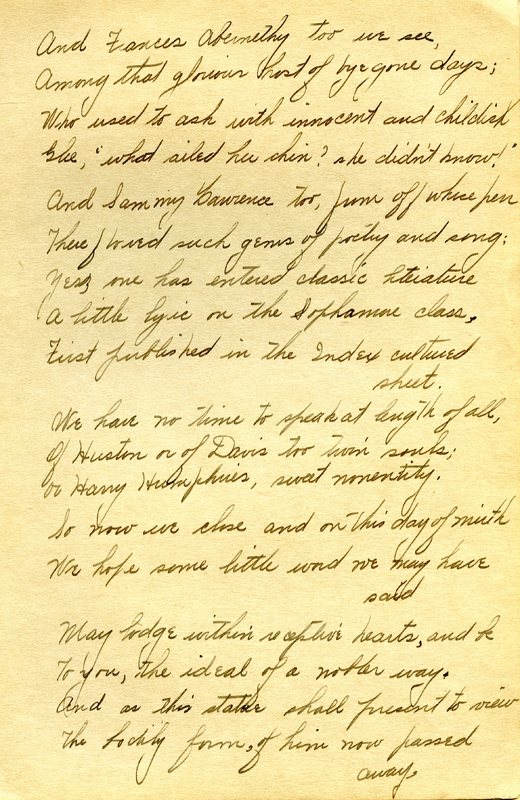 And Frances Abernethy too we see,
Among that glorious host of bye gone days;
Who used to ask with innocent and childish
Glee, "what ailed her chin? she didn't know!"
And Sammy Lawrence too, from off whose pen
There flowed such gems of poetry and song:
Yes, one has entered classic literature
A little lyric on the Sophamore class,
First published in the Index cultured
sheet.
We have no time to speak at length of all,
Of Huston or of Davis too twin souls;
Or Harry Humphries, sweet nonentity.
So now we close and on this day of mirth
We hope some little word we may have
said
May lodge within receptive hearts, and be
To you, the ideal of a nobler way.
And as this statue shall present to view
The bodily form, of him now passed
away.